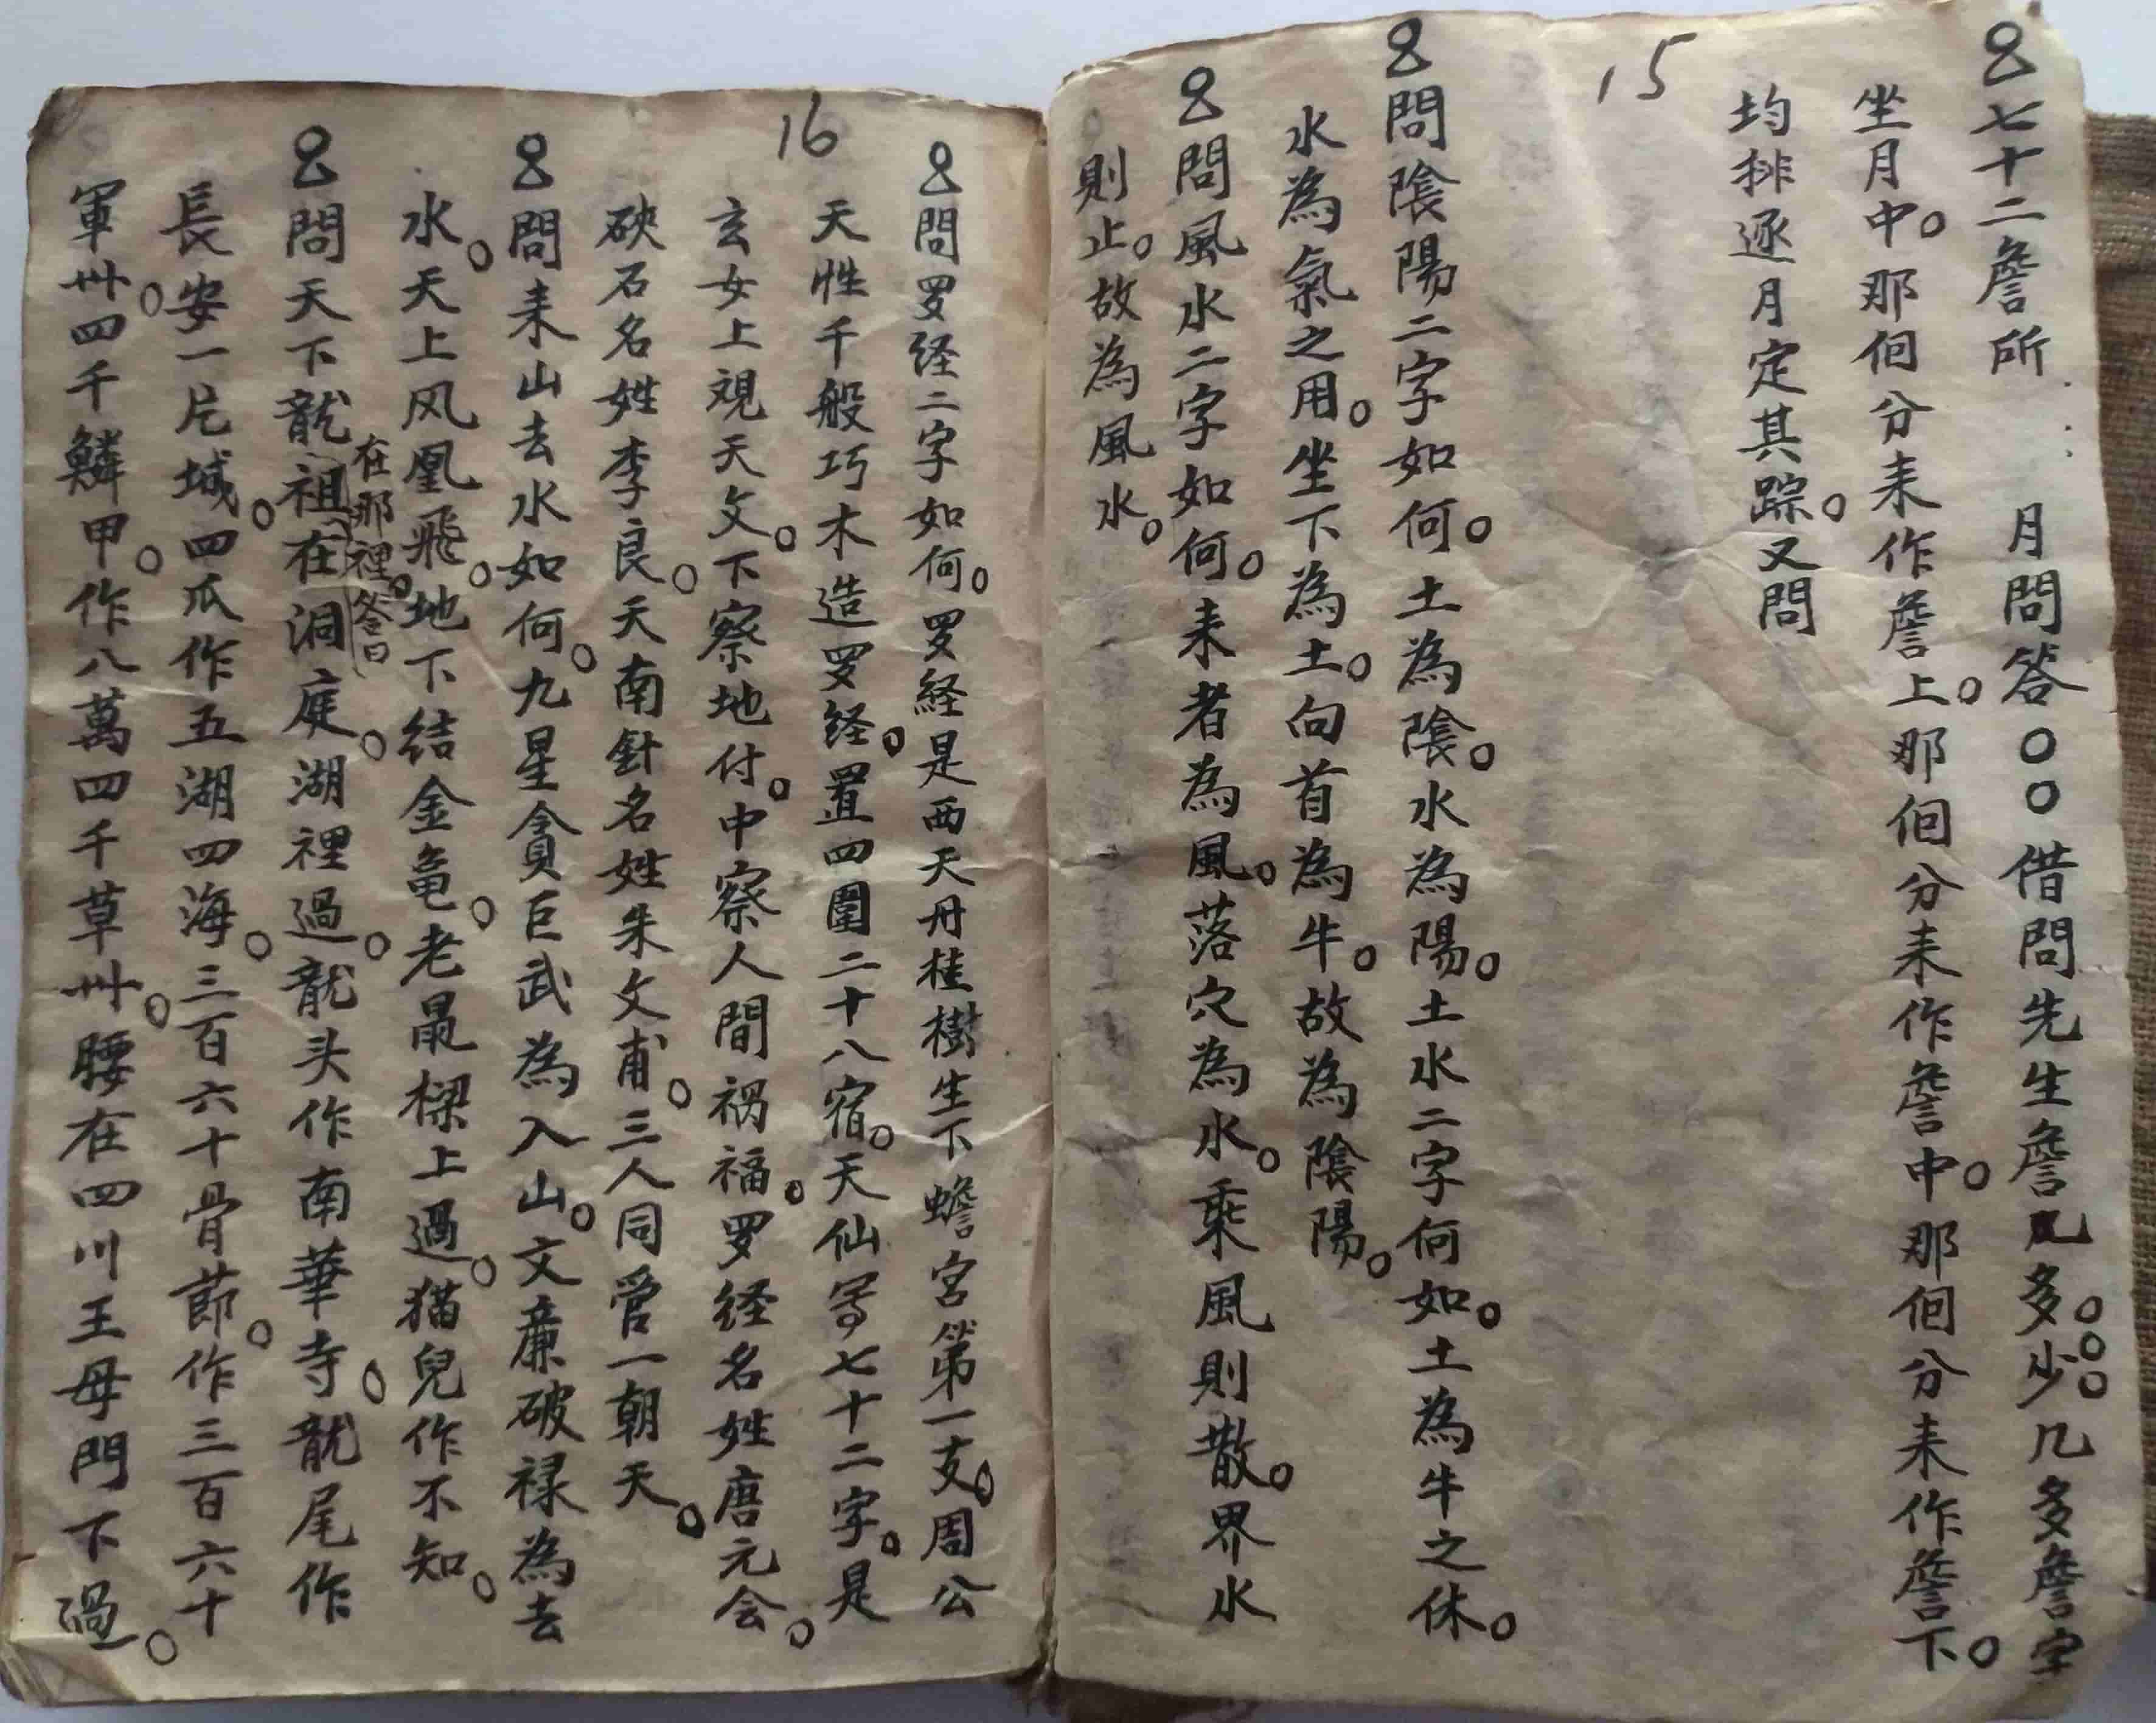 七十二詹所 月問答〇〇借問先生詹几多。少。几多詹字
坐月中。那佪分耒作詹上。那佪分耒作詹中。那佪分耒作詹下。
均排逐月定其踪。又問
15
問陰陽二字如何。土為陰。水為陽。土水二字何如。土為牛之休。
水為氣之用。坐下為土。向首為牛。故為陰陽。
問風水二字如何。耒者為風。落穴為水。乘風則散。界水
則止。故為風水。
問罗経二字如何。罗経是西天丹桂樹生下蟾宮第一支。周公
天性千般巧木造罗経。置四圍二十八宿。天仙寫七十二字。是
16
玄女上視天文。下察地付。中察人間禍福。罗経名姓唐元会。
砄石名姓李良。天南針名姓朱文甫。三人同管一朝天。
問耒山去水如何。九星貪巨武為入山。文廉破禄為去
水。天上风凰飛。地下結金龟。老鼠樑上過。猫兒作不知。
在那裡。答曰
問天下龍祖在洞庭。湖裡過。龍头作南華寺。龍尾作
長安一片城。四瓜作五湖四海。三百六十骨節。作三百六十
軍州。四千鱗甲。作八萬四千草州。腰在四川王母門下過。